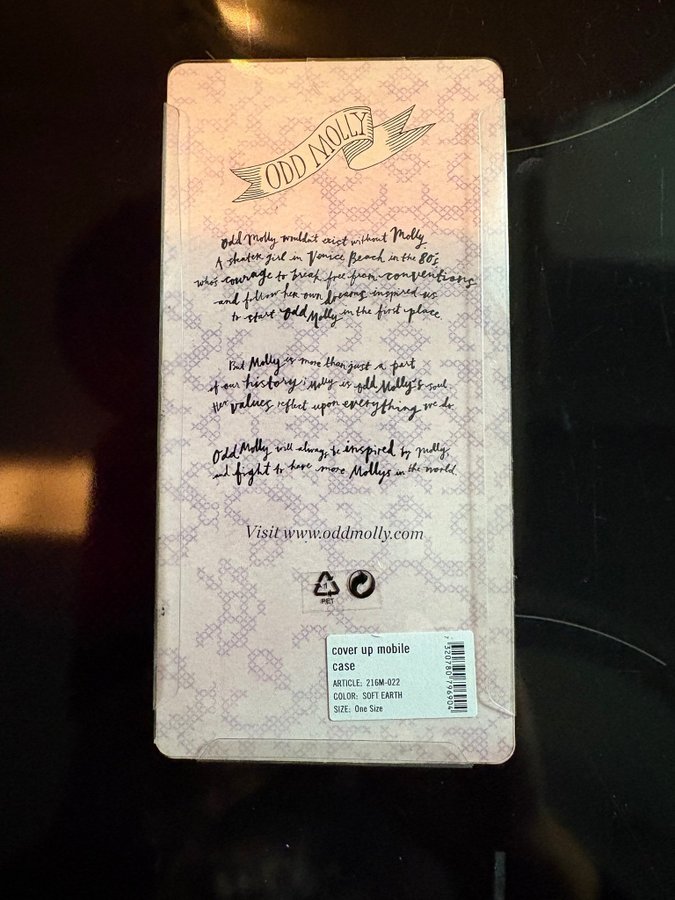 ODD MOLLY
Odd Molly wouldn't exist without Molly.
A skater girl in Venice Beach in the 80's
who's courage to break free from conventions
and follow her own dreams inspired us
to start Odd Molly in the first place.
But Molly is more than just a part
of our history; Molly is Odd Molly's soul.
Her values reflect upon everything we do
Odd Molly will always be inspired by Molly
and fight to have more Mollys in the world.
Visit www.oddmolly.com
1
PET
cover up mobile
case
ARTICLE: 216M-022
COLOR: SOFT EARTH
SIZE: One Size
7320780796904